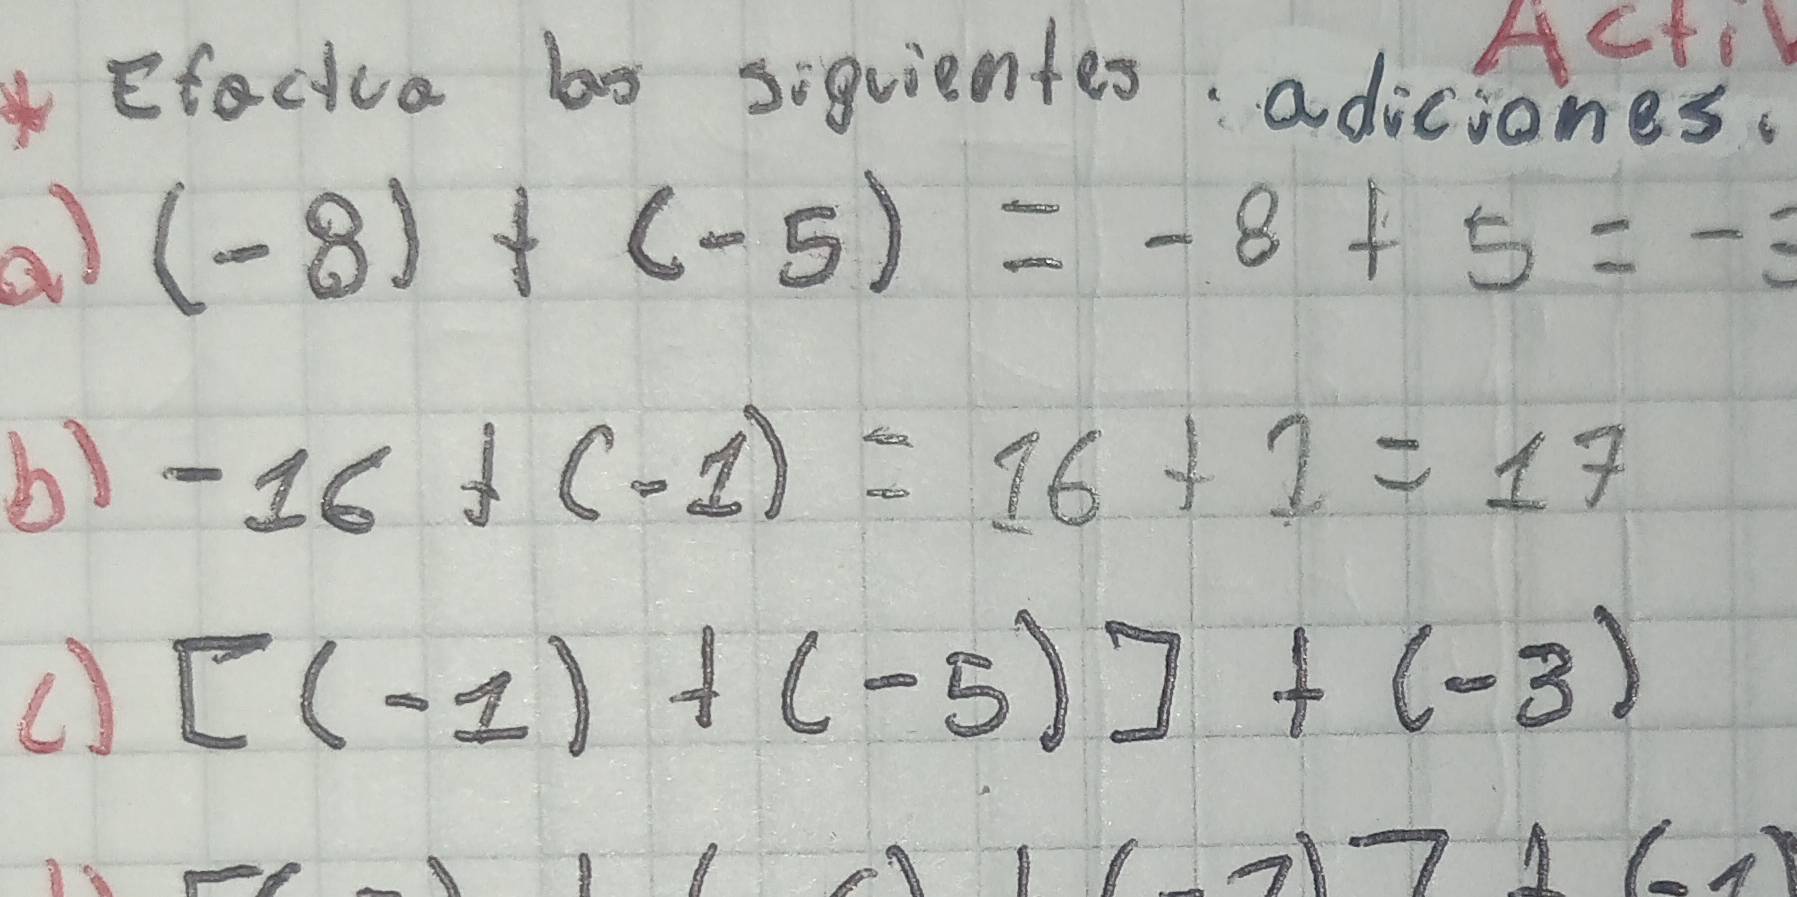 Activ
* Efectua las siguientes adiciones.
a) (-8) + (-5) = -8 + 5 = -3
b) -16 + (-1) = 16 + 1 = 17
c) [(-1) + (-5)] + (-3)